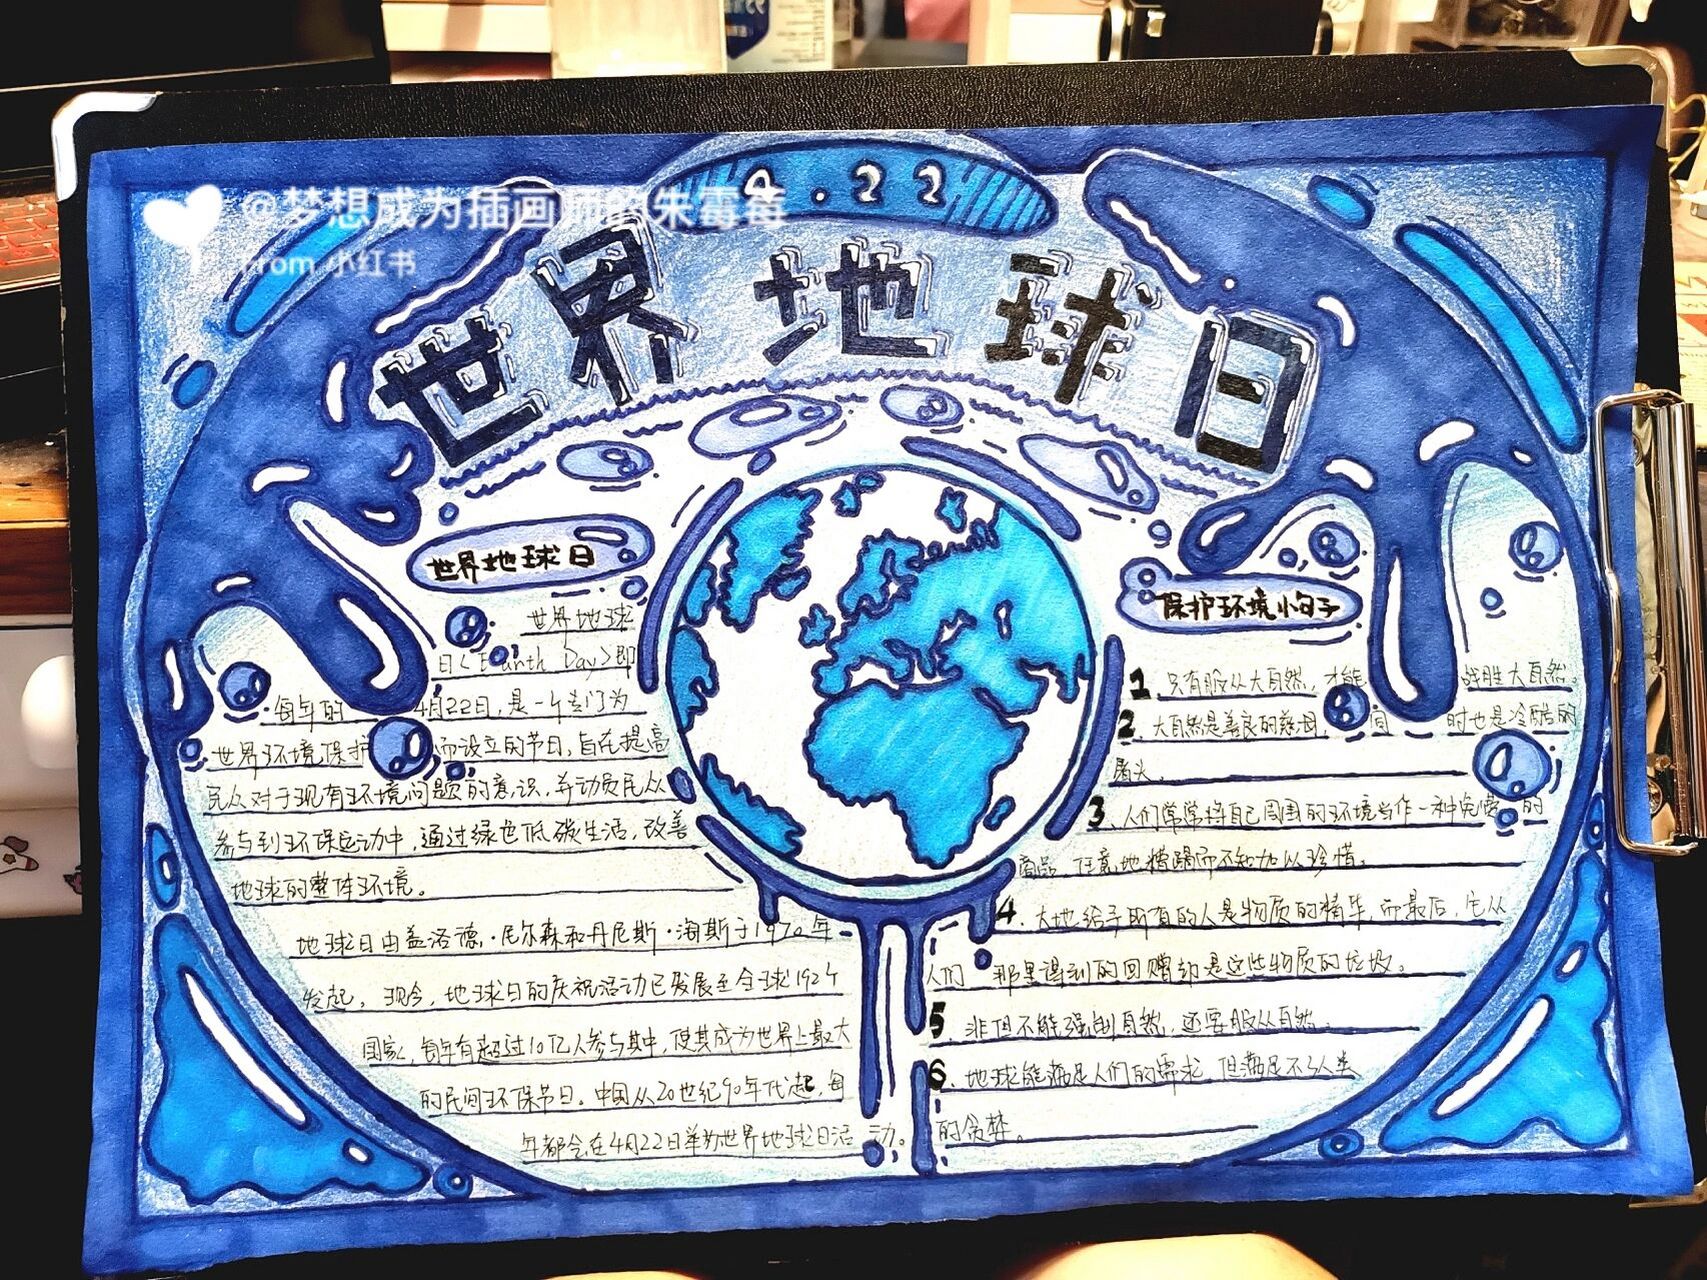 @梦想成为插画师的朱霉莓
From 小红书
4.22
世界地球日
世界地球日
世界地球
日<Earth Day>即
每年的4月22日,是一个专门为
世界环境保护而设立的节日,旨在提高
民众对于现有环境问题的意识,并动员民众
参与到环保运动中,通过绿色低碳生活,改善
地球的整体环境。
地球日由盖洛德·尼尔森和丹尼斯·海斯于1970年
发起。现今,地球日的庆祝活动已发展至全球192个
国家,每年有超过10亿人参与其中,使其成为世界上最大
的民间环保节日。中国从20世纪90年代起,每
年都会在4月22日举办世界地球日活动。
保护环境小句子
1、只有服从大自然,才能战胜大自然。
2、大自然是善良的慈母,同时也是冷酷的
屠夫。
3、人们常常将自己周围的环境当作一种免费的
商品,任意地糟蹋而不知加以珍惜。
4、大地给予所有的人是物质的精华,而最后,它从
人们那里得到的回赠却是这些物质的垃圾。
5、非但不能强制自然,还要服从自然。
6、地球能满足人们的需求,但满足不了人类
的贪婪。